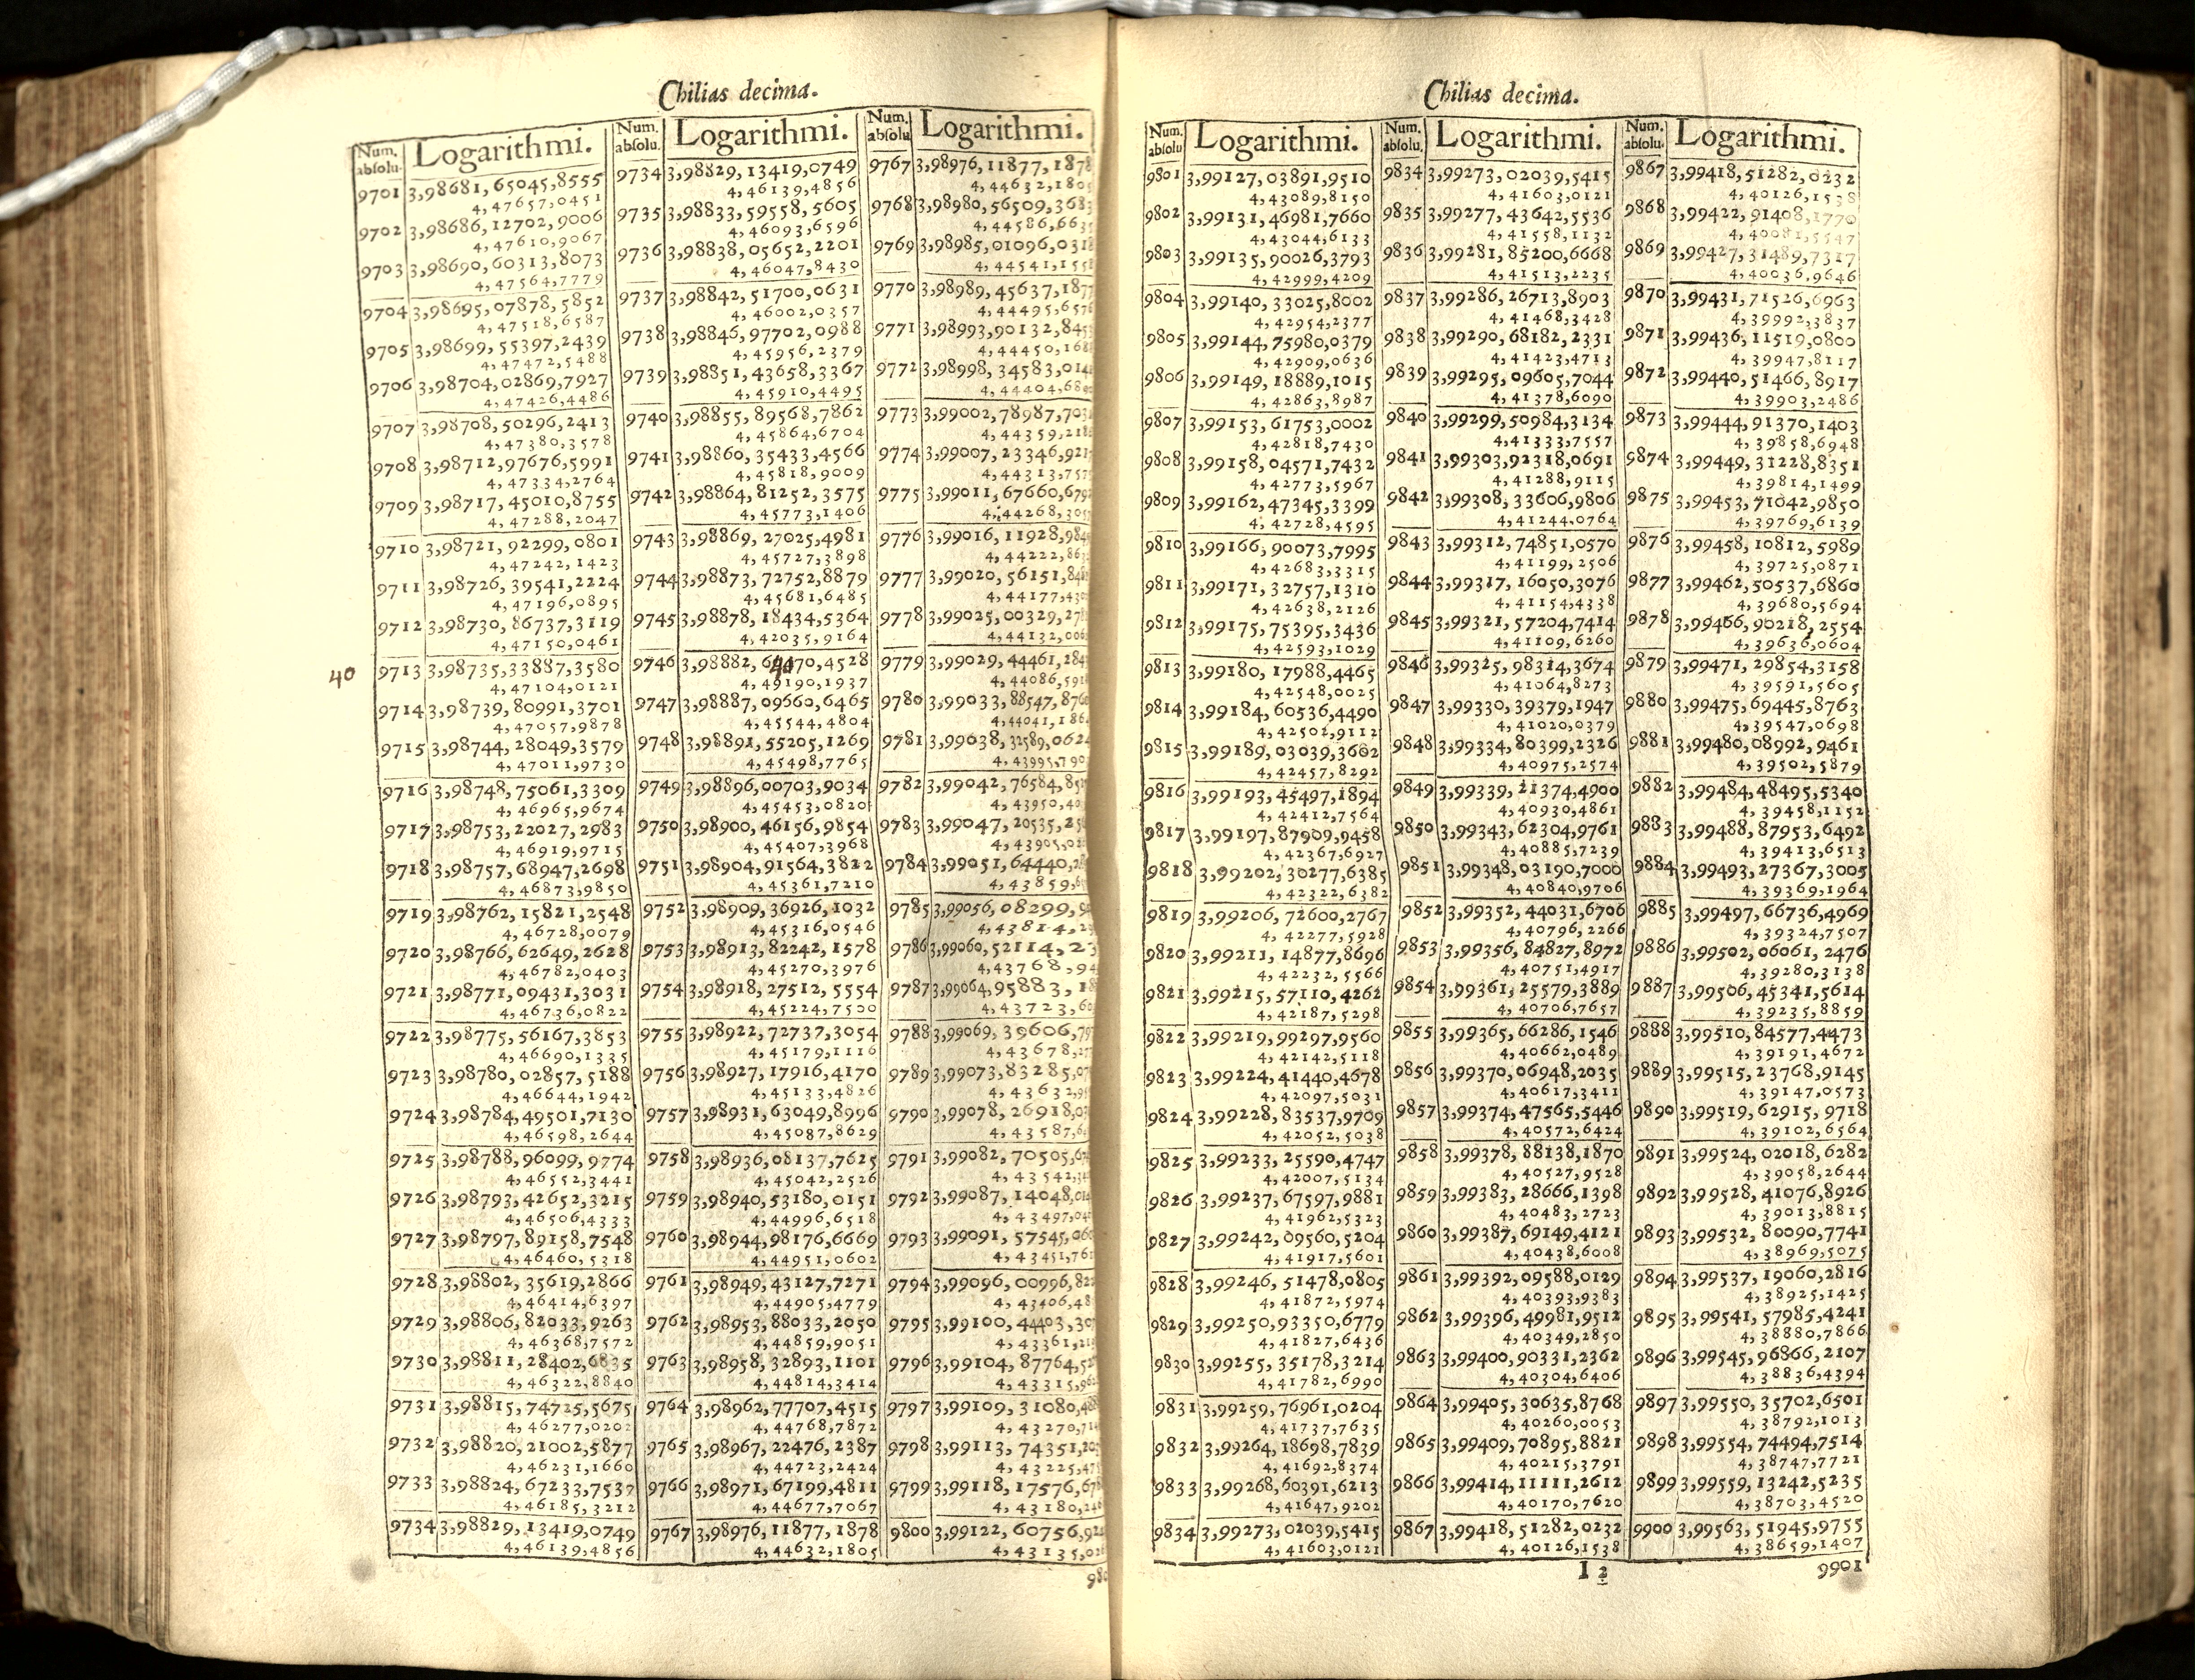 Chilias decima.
Num. absolu. Logarithmi.
9701 3,98681,65045,8555
4,47657,0451
9702 3,98686,12702,9006
4,47610,9067
9703 3,98690,60313,8073
4,47564,7779
9704 3,98695,07878,5852
4,47518,6587
9705 3,98699,55397,2439
4,47472,5488
9706 3,98704,02869,7927
4,47426,4486
9707 3,98708,50296,2413
4,47380,3578
9708 3,98712,97676,5991
4,47334,2764
9709 3,98717,45010,8755
4,47288,2047
9710 3,98721,92299,0801
4,47242,1423
9711 3,98726,39541,2224
4,47196,0895
9712 3,98730,86737,3119
4,47150,0461
40
9713 3,98735,33887,3580
4,47104,0121
9714 3,98739,80991,3701
4,47057,9878
9715 3,98744,28049,3579
4,47011,9730
9716 3,98748,75061,3309
4,46965,9674
9717 3,98753,22027,2983
4,46919,9715
9718 3,98757,68947,2698
4,46873,9850
9719 3,98762,15821,2548
4,46728,0079
9720 3,98766,62649,2628
4,46782,0403
9721 3,98771,09431,3031
4,46736,0822
9722 3,98775,56167,3853
4,46690,1335
9723 3,98780,02857,5188
4,46644,1942
9724 3,98784,49501,7130
4,46598,2644
9725 3,98788,96099,9774
4,46552,3441
9726 3,98793,42652,3215
4,46506,4333
9727 3,98797,89158,7548
4,46460,5318
9728 3,98802,35619,2866
4,46414,6397
9729 3,98806,82033,9263
4,46368,7572
9730 3,98811,28402,6835
4,46322,8840
9731 3,98815,74725,5675
4,46277,0202
9732 3,98820,21002,5877
4,46231,1660
9733 3,98824,67233,7537
4,46185,3212
9734 3,98829,13419,0749
4,46139,4856
Num. absolu. Logarithmi.
9734 3,98829,13419,0749
4,46139,4856
9735 3,98833,59558,5605
4,46093,6596
9736 3,98838,05652,2201
4,46047,8430
9737 3,98842,51700,0631
4,46002,0357
9738 3,98846,97702,0988
4,45956,2379
9739 3,98851,43658,3367
4,45910,4495
9740 3,98855,89568,7862
4,45864,6704
9741 3,98860,35433,4566
4,45818,9009
9742 3,98864,81252,3575
4,45773,1406
9743 3,98869,27025,4981
4,45727,3898
9744 3,98873,72752,8879
4,45681,6485
9745 3,98878,18434,5364
4,42035,9164
9746 3,98882,64070,4528
4,49190,1937
9747 3,98887,09660,6465
4,45544,4804
9748 3,98891,55205,1269
4,45498,7765
9749 3,98896,00703,9034
4,45453,0820
9750 3,98900,46156,9854
4,45407,3968
9751 3,98904,91564,3822
4,45361,7210
9752 3,98909,36926,1032
4,45316,0546
9753 3,98913,82242,1578
4,45270,3976
9754 3,98918,27512,5554
4,45224,7500
9755 3,98922,72737,3054
4,45179,1116
9756 3,98927,17916,4170
4,45133,4826
9757 3,98931,63049,8996
4,45087,8629
9758 3,98936,08137,7625
4,45042,2526
9759 3,98940,53180,0151
4,44996,6518
9760 3,98944,98176,6669
4,44951,0602
9761 3,98949,43127,7271
4,44905,4779
9762 3,98953,88033,2050
4,44859,9051
9763 3,98958,32893,1101
4,44814,3414
9764 3,98962,77707,4515
4,44768,7872
9765 3,98967,22476,2387
4,44723,2424
9766 3,98971,67199,4811
4,44677,7067
9767 3,98976,11877,1878
4,44632,1805
Num. absolu Logarithmi.
9767 3,98976,11877,1878
4,44632,1805
9768 3,98980,56509,3683
4,44586,663
9769 3,98985,01096,0318
4,44541,155
9770 3,98989,45637,1877
4,44495,6576
9771 3,98993,90132,845
4,44450,168
9772 3,98998,34583,014
4,44404,68
9773 3,99002,78987,703
4,44359,218
9774 3,99007,23346,921
4,44313,757
9775 3,99011,67660,679
4,44268,305
9776 3,99016,11928,984
4,44222,86
9777 3,99020,56151,84
4,44177,43
9778 3,99025,00329,27
4,44132,00
9779 3,99029,44461,284
4,44086,591
9780 3,99033,88547,876
4,44041,186
9781 3,99038,32589,062
4,43995,790
9782 3,99042,76584,85
4,43950,40
9783 3,99047,20535,25
4,43905,02
9784 3,99051,64440,2
4,43859,6
9785 3,99056,08299,9
4,43814,2
9786 3,99060,52114,2
4,43768,9
9787 3,99064,95883,1
4,43723,6
9788 3,99069,39606,7
4,43678,2
9789 3,99073,83285,0
4,43632,9
9790 3,99078,26918,0
4,43587,6
9791 3,99082,70505,6
4,43542,3
9792 3,99087,14048,0
4,43497,0
9793 3,99091,57545,06
4,43451,76
9794 3,99096,00996,82
4,43406,48
9795 3,99100,44403,30
4,43361,21
9796 3,99104,87764,52
4,43315,96
9797 3,99109,31080,48
4,43270,71
9798 3,99113,74351,20
4,43225,47
9799 3,99118,17576,67
4,43180,24
9800 3,99122,60756,92
4,43135,02
980
Chilias decima.
Num. absolu Logarithmi.
9801 3,99127,03891,9510
4,43089,8150
9802 3,99131,46981,7660
4,43044,6133
9803 3,99135,90026,3793
4,42999,4209
9804 3,99140,33025,8002
4,42954,2377
9805 3,99144,75980,0379
4,42909,0636
9806 3,99149,18889,1015
4,42863,8987
9807 3,99153,61753,0002
4,42818,7430
9808 3,99158,04571,7432
4,42773,5967
9809 3,99162,47345,3399
4,42728,4595
9810 3,99166,90073,7995
4,42683,3315
9811 3,99171,32757,1310
4,42638,2126
9812 3,99175,75395,3436
4,42593,1029
9813 3,99180,17988,4465
4,42548,0025
9814 3,99184,60536,4490
4,42502,9112
9815 3,99189,03039,3602
4,42457,8292
9816 3,99193,45497,1894
4,42412,7564
9817 3,99197,87909,9458
4,42367,6927
9818 3,99202,30277,6385
4,42322,6382
9819 3,99206,72600,2767
4,42277,5928
9820 3,99211,14877,8696
4,42232,5566
9821 3,99215,57110,4262
4,42187,5298
9822 3,99219,99297,9560
4,42142,5118
9823 3,99224,41440,4678
4,42097,5031
9824 3,99228,83537,9709
4,42052,5038
9825 3,99233,25590,4747
4,42007,5134
9826 3,99237,67597,9881
4,41962,5323
9827 3,99242,09560,5204
4,41917,5601
9828 3,99246,51478,0805
4,41872,5974
9829 3,99250,93350,6779
4,41827,6436
9830 3,99255,35178,3214
4,41782,6990
9831 3,99259,76961,0204
4,41737,7635
9832 3,99264,18698,7839
4,41692,8374
9833 3,99268,60391,6213
4,41647,9202
9834 3,99273,02039,5415
4,41603,0121
Num. absolu. Logarithmi.
9834 3,99273,02039,5415
4,41603,0121
9835 3,99277,43642,5536
4,41558,1132
9836 3,99281,85200,6668
4,41513,2235
9837 3,99286,26713,8903
4,41468,3428
9838 3,99290,68182,2331
4,41423,4713
9839 3,99295,09605,7044
4,41378,6090
9840 3,99299,50984,3134
4,41333,7557
9841 3,99303,92318,0691
4,41288,9115
9842 3,99308,33606,9806
4,41244,0764
9843 3,99312,74851,0570
4,41199,2506
9844 3,99317,16050,3076
4,41154,4338
9845 3,99321,57204,7414
4,41109,6260
9846 3,99325,98314,3674
4,41064,8273
9847 3,99330,39379,1947
4,41020,0379
9848 3,99334,80399,2326
4,40975,2574
9849 3,99339,21374,4900
4,40930,4861
9850 3,99343,62304,9761
4,40885,7239
9851 3,99348,03190,7000
4,40840,9706
9852 3,99352,44031,6706
4,40796,2266
9853 3,99356,84827,8972
4,40751,4917
9854 3,99361,25579,3889
4,40706,7657
9855 3,99365,66286,1546
4,40662,0489
9856 3,99370,06948,2035
4,40617,3411
9857 3,99374,47565,5446
4,40572,6424
9858 3,99378,88138,1870
4,40527,9528
9859 3,99383,28666,1398
4,40483,2723
9860 3,99387,69149,4121
4,40438,6008
9861 3,99392,09588,0129
4,40393,9383
9862 3,99396,49981,9512
4,40349,2850
9863 3,99400,90331,2362
4,40304,6406
9864 3,99405,30635,8768
4,40260,0053
9865 3,99409,70895,8821
4,40215,3791
9866 3,99414,11111,2612
4,40170,7620
9867 3,99418,51282,0232
4,40126,1538
Num. absolu. Logarithmi.
9867 3,99418,51282,0232
4,40126,1538
9868 3,99422,91408,1770
4,40081,5547
9869 3,99427,31489,7317
4,40036,9646
9870 3,99431,71526,6963
4,39992,3837
9871 3,99436,11519,0800
4,39947,8117
9872 3,99440,51466,8917
4,39903,2486
9873 3,99444,91370,1403
4,39858,6948
9874 3,99449,31228,8351
4,39814,1499
9875 3,99453,71042,9850
4,39769,6139
9876 3,99458,10812,5989
4,39725,0871
9877 3,99462,50537,6860
4,39680,5694
9878 3,99466,90218,2554
4,39636,0604
9879 3,99471,29854,3158
4,39591,5605
9880 3,99475,69445,8763
4,39547,0698
9881 3,99480,08992,9461
4,39502,5879
9882 3,99484,48495,5340
4,39458,1152
9883 3,99488,87953,6492
4,39413,6513
9884 3,99493,27367,3005
4,39369,1964
9885 3,99497,66736,4969
4,39324,7507
9886 3,99502,06061,2476
4,39280,3138
9887 3,99506,45341,5614
4,39235,8859
9888 3,99510,84577,4473
4,39191,4672
9889 3,99515,23768,9145
4,39147,0573
9890 3,99519,62915,9718
4,39102,6564
9891 3,99524,02018,6282
4,39058,2644
9892 3,99528,41076,8926
4,39013,8815
9893 3,99532,80090,7741
4,38969,5075
9894 3,99537,19060,2816
4,38925,1425
9895 3,99541,57985,4241
4,38880,7866
9896 3,99545,96866,2107
4,38836,4394
9897 3,99550,35702,6501
4,38792,1013
9898 3,99554,74494,7514
4,38747,7721
9899 3,99559,13242,5235
4,38703,4520
9900 3,99563,51945,9755
4,38659,1407
I 2
9901